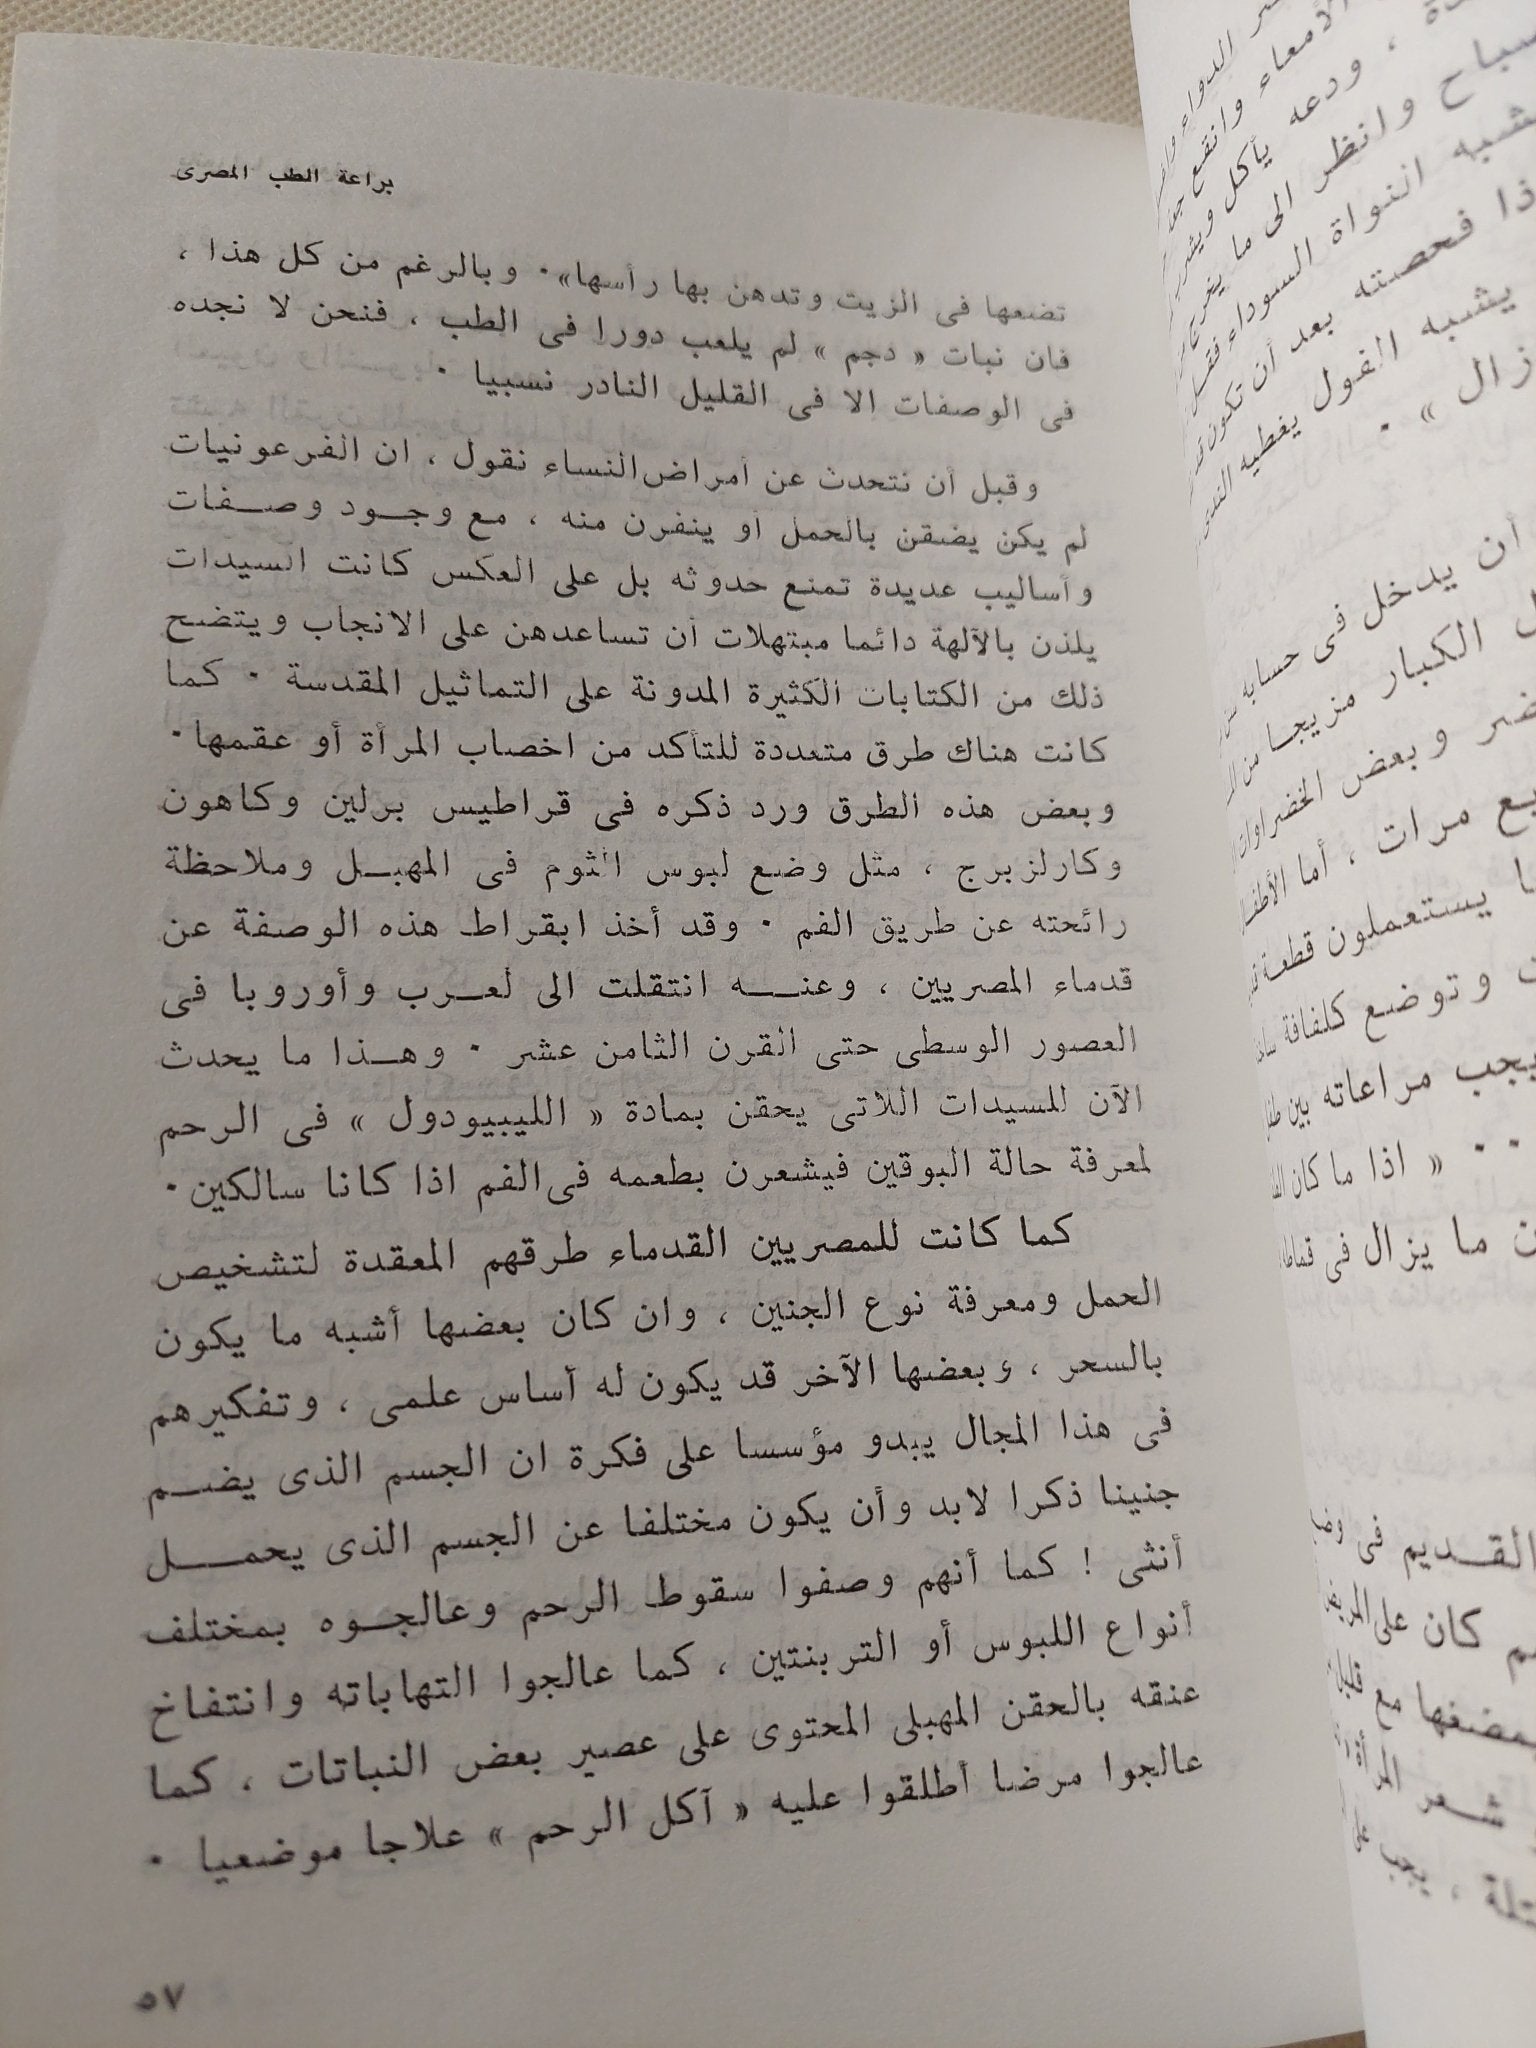 براعة الطب المصرى
تضعها فى الزيت وتدهن بها رأسها» · وبالرغم من كل هذا ،
فان نبات « دجم » لم يلعب دورا فى الطب ، فنحن لا نجده
فى الوصفات الا فى القليل النادر نسبيا ·
وقبل أن نتحدث عن أمراض النساء نقول ، ان الفرعونيات
لم يكن يضقن بالحمل أو ينفرن منه ، مع وجود وصفات
وأساليب عديدة تمنع حدوثه بل على العكس كانت السيدات
يلذن بالآلهة دائما مبتهلات أن تساعدهن على الانجاب ويتضح
ذلك من الكتابات الكثيرة المدونة على التماثيل المقدسة · كما
كانت هناك طرق متعددة للتأكد من اخصاب المرأة أو عقمها ·
وبعض هذه الطرق ورد ذكره فى قراطيس برلين وكاهون
وكارلزبرج ، مثل وضع لبوس الثوم فى المهبل وملاحظة
رائحته عن طريق الفم · وقد أخذ ابقراط هذه الوصفة عن
قدماء المصريين ، وعنه انتقلت الى لعرب وأوروبا فى
العصور الوسطى حتى القرن الثامن عشر · وهذا ما يحدث
الآن للسيدات اللاتى يحقن بمادة « الليبيودول » فى الرحم
لمعرفة حالة البوقين فيشعرن بطعمه فى الفم اذا كانا سالكين ·
كما كانت للمصريين القدماء طرقهم المعقدة لتشخيص
الحمل ومعرفة نوع الجنين ، وان كان بعضها أشبه ما يكون
بالسحر ، وبعضها الآخر قد يكون له أساس علمى ، وتفكيرهم
فى هذا المجال يبدو مؤسسا على فكرة ان الجسم الذى يضم
جنينا ذكرا لابد وأن يكون مختلفا عن الجسم الذى يحمل
أنثى ! كما أنهم وصفوا سقوط الرحم وعالجوه بمختلف
أنواع اللبوس أو التربنتين ، كما عالجوا التهاباته وانتفاخ
عنقه بالحقن المهبلى المحتوى على عصير بعض النباتات ، كما
عالجوا مرضا أطلقوا عليه « آكل الرحم » علاجا موضعيا ·
٥٧
الدواء
الأمعاء وانقع
، ودعه يأكل
وانظر الى ما يخرج
يشبه النواة السوداء
فحصته بعد أن تكون
يشبه الفول يغطيه الندى
زال » ·
أن يدخل فى حسابه
الكبار مزيجا من
وبعض الخضراوات
مرات ، أما الأطفال
يستعملون قطعة
وتوضع كلفافة
يجب مراعاته بين
· · « اذا ما كان
ما يزال فى
القديم فى
كان على المريض
مع
شعر المرأة
، يجب على